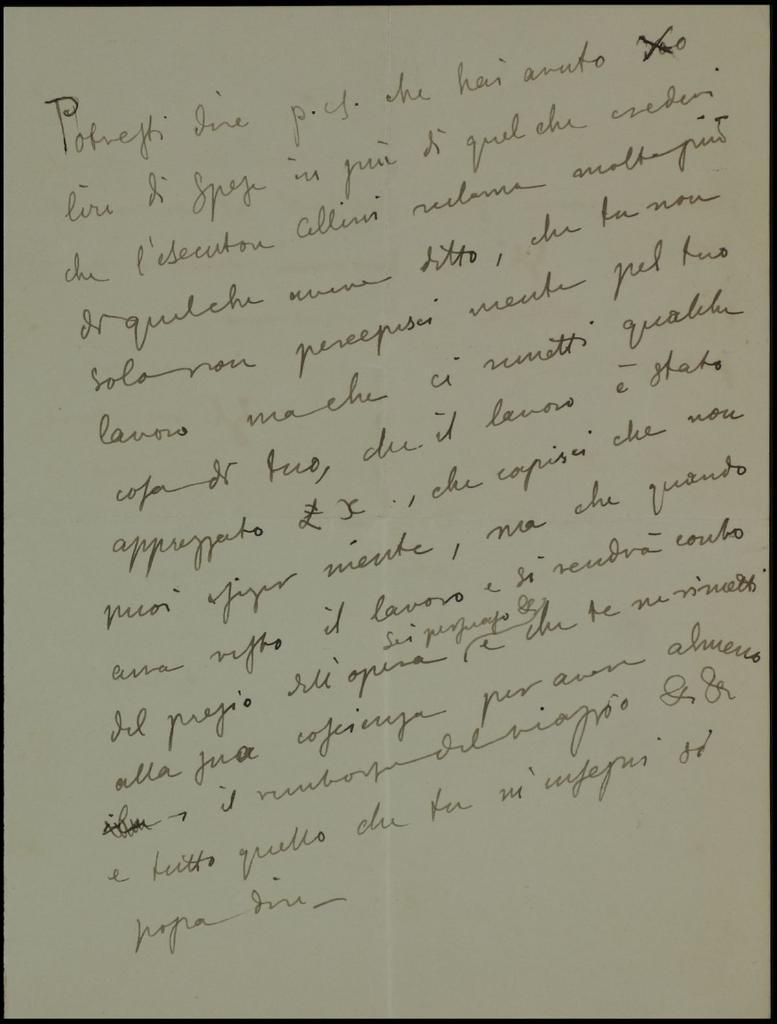 Potresti dire p. es. che hai avuto
lire di spese in più di quel che credevi
che l'esecutore Cellini reclama molto più
di quel che aveva ditto, che tu non
solo non percepisci niente pel tuo
lavoro ma che ci rimetti qualche
cosa di tuo, che il lavoro è stato
apprezzato £ X., che capisci che non
puoi esiger niente, ma che quando
avrà visto il lavoro e si rendrà conto
del pregio dell'opera, sei persuaso &, e che te ne rimetti
alla sua coscienza per avere almeno
il rimborso del viaggio & &
e tutto quello che tu m'insegni si
possa dire —